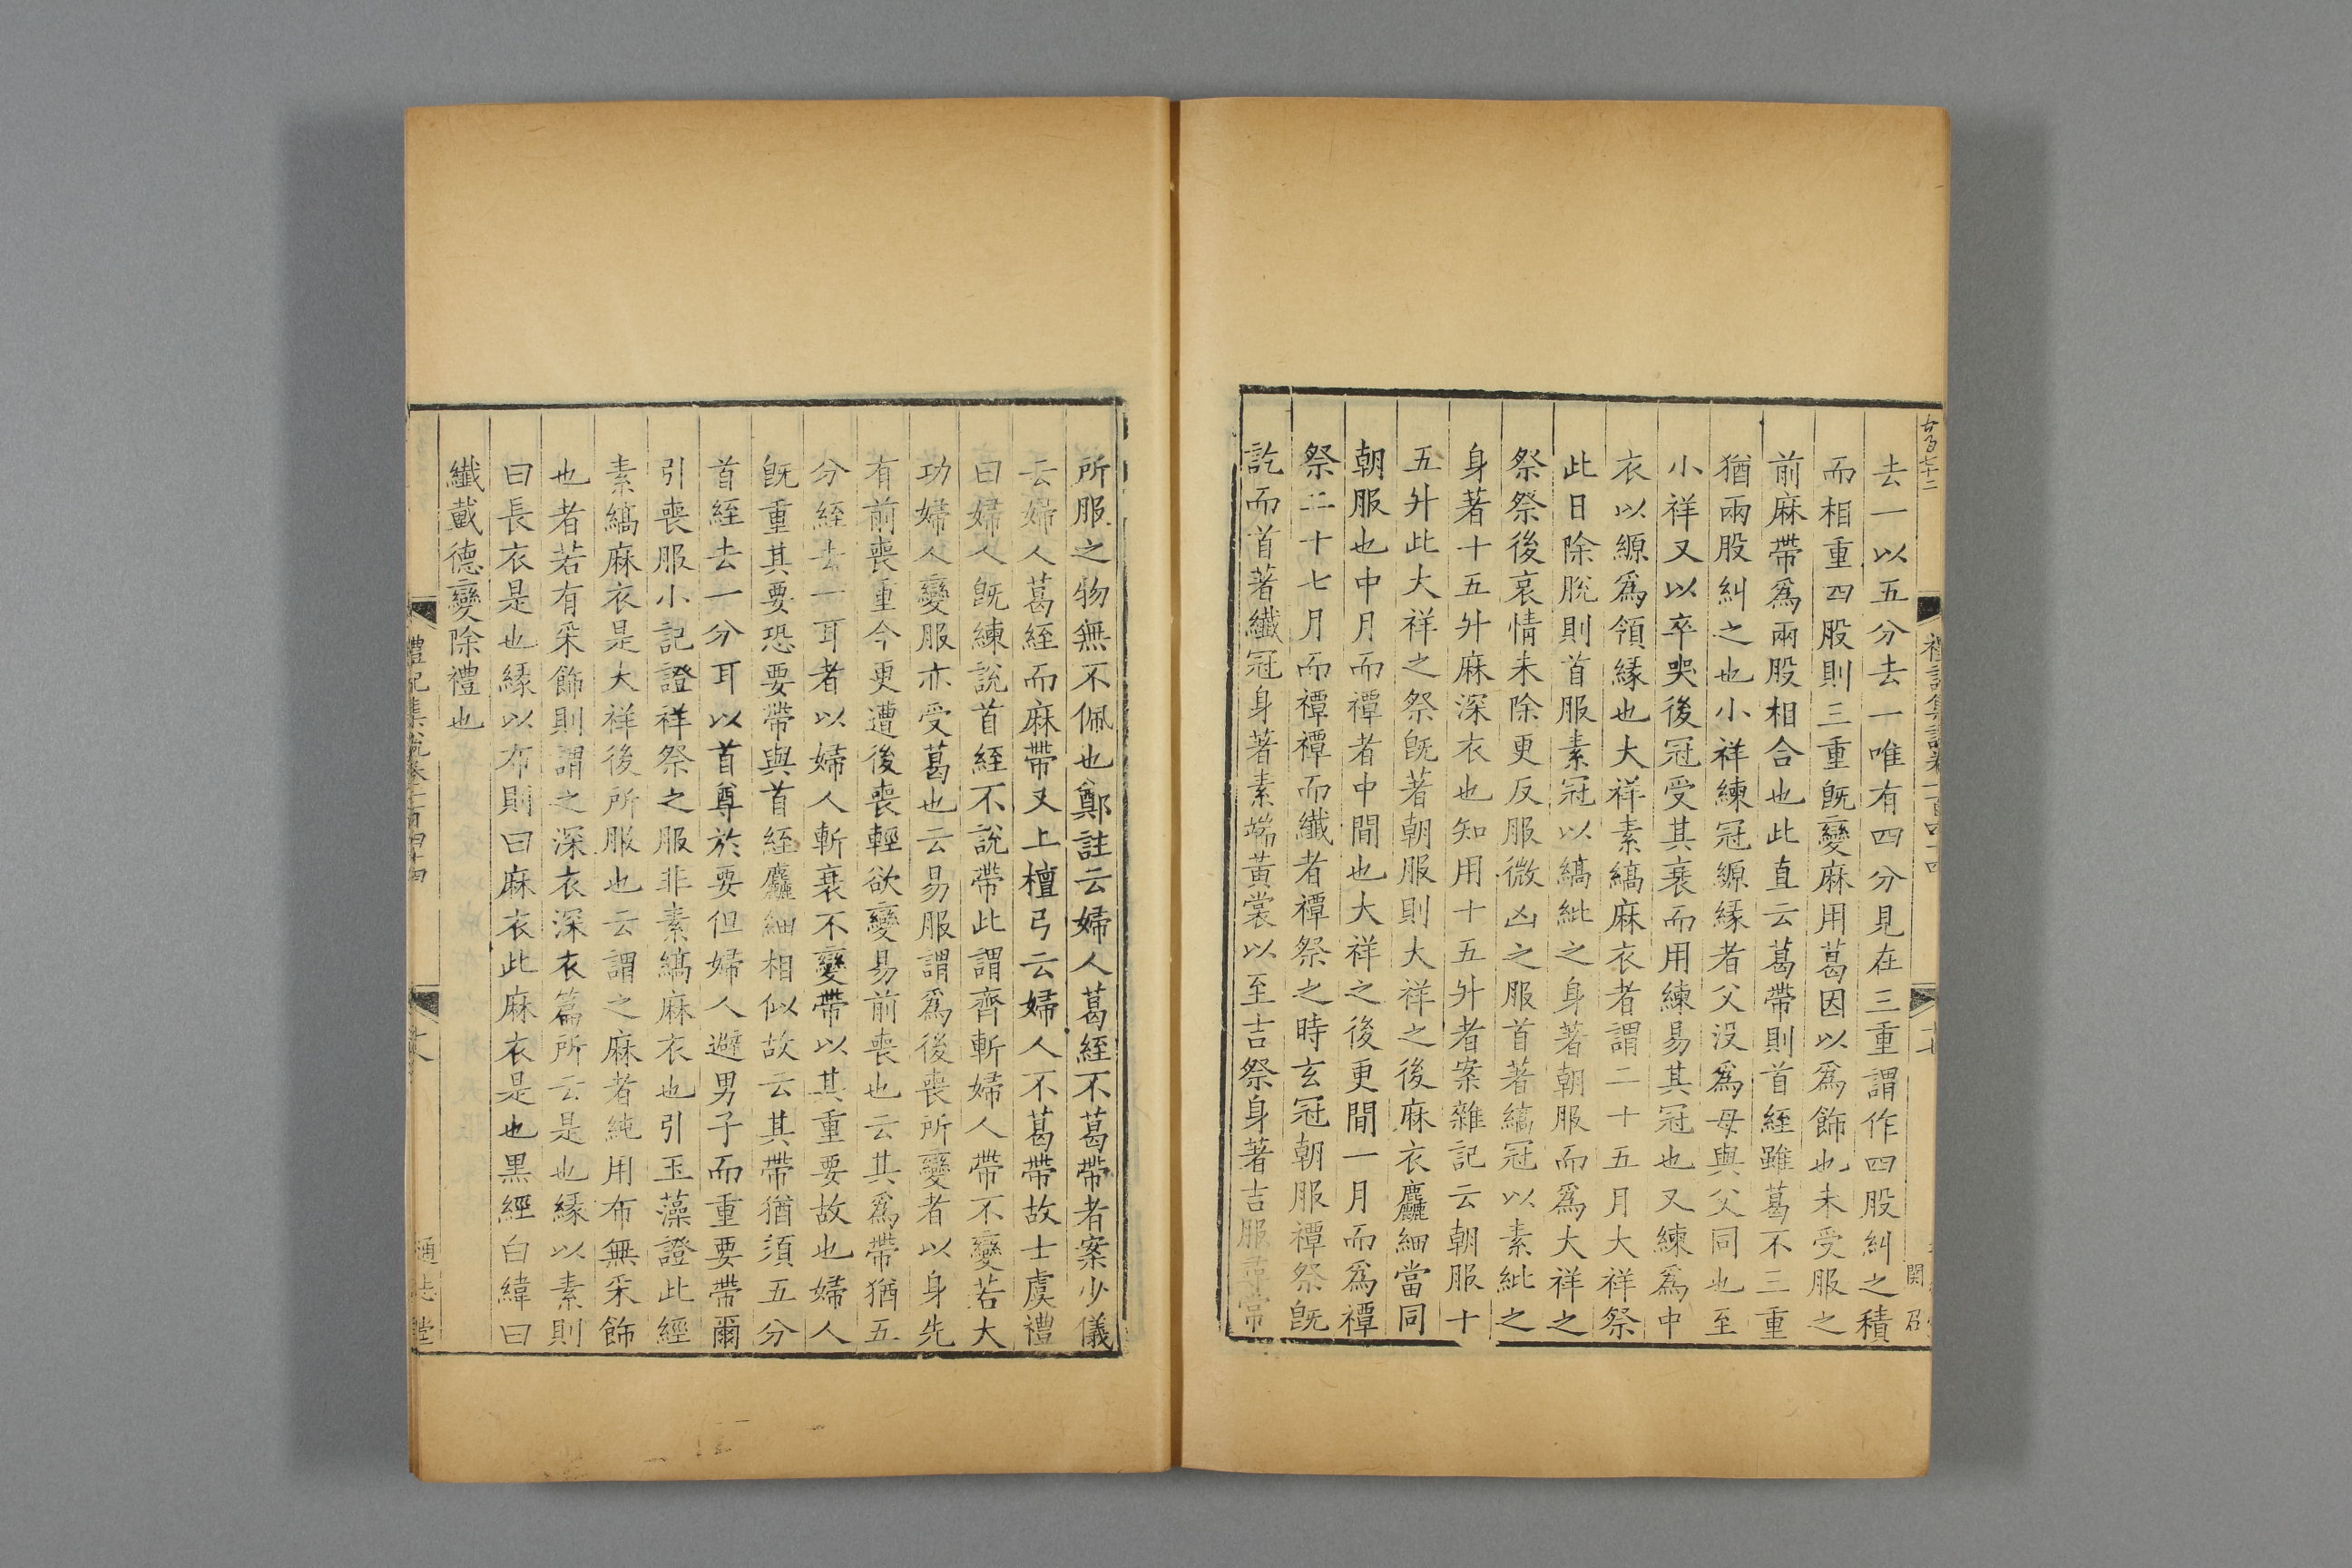 去一以五分去一唯有四分見在三重謂作四股糾之積
而相重四股則三重旣變麻用葛因以爲飾也未受服之
前麻帶爲兩股相合也此直云葛帶則首絰雖葛不三重
猶兩股糾之也小祥練冠縓緣者父没爲母與父同也至
小祥又以卒哭後冠受其衰而用練易其冠也又練爲中
衣以縓爲領緣也大祥素縞麻衣者謂二十五月大祥祭
此日除脫則首服素冠以縞紕之身著朝服而爲大祥之
祭祭後哀情未除更反服微凶之服首著縞冠以素紕之
身著十五升麻深衣也知用十五升者案雜記云朝服十
五升此大祥之祭旣著朝服則大祥之後麻衣麤細當同
朝服也中月而禫者中間也大祥之後更間一月而爲禫
祭二十七月而禫禫而纖者禫祭之時玄冠朝服禫祭旣
訖而首著纖冠身著素端黃裳以至吉祭身著吉服尋常
所服之物無不佩也鄭註云婦人葛絰不葛帶者案少儀
云婦人葛絰而麻帶又上檀弓云婦人不葛帶故士虞禮
曰婦人旣練說首絰不說帶此謂齊斬婦人帶不變若大
功婦人變服亦受葛也云易服謂爲後喪所變者以身先
有前喪重今更遭後喪輕欲變易前喪也云其爲帶猶五
分絰去一耳者以婦人斬衰不變帶以其重要故也婦人
旣重其要恐要帶與首絰麤細相似故云其帶猶須五分
首絰去一分耳以首尊於要但婦人避男子而重要帶爾
引喪服小記證祥祭之服非素縞麻衣也引玉藻證此經
素縞麻衣是大祥後所服也云謂之麻者純用布無采飾
也者若有采飾則謂之深衣深衣篇所云是也緣以素則
曰長衣是也緣以布則曰麻衣此麻衣是也黑經白緯曰
纖戴德變除禮也
禮記集說卷一百四十四
通志堂